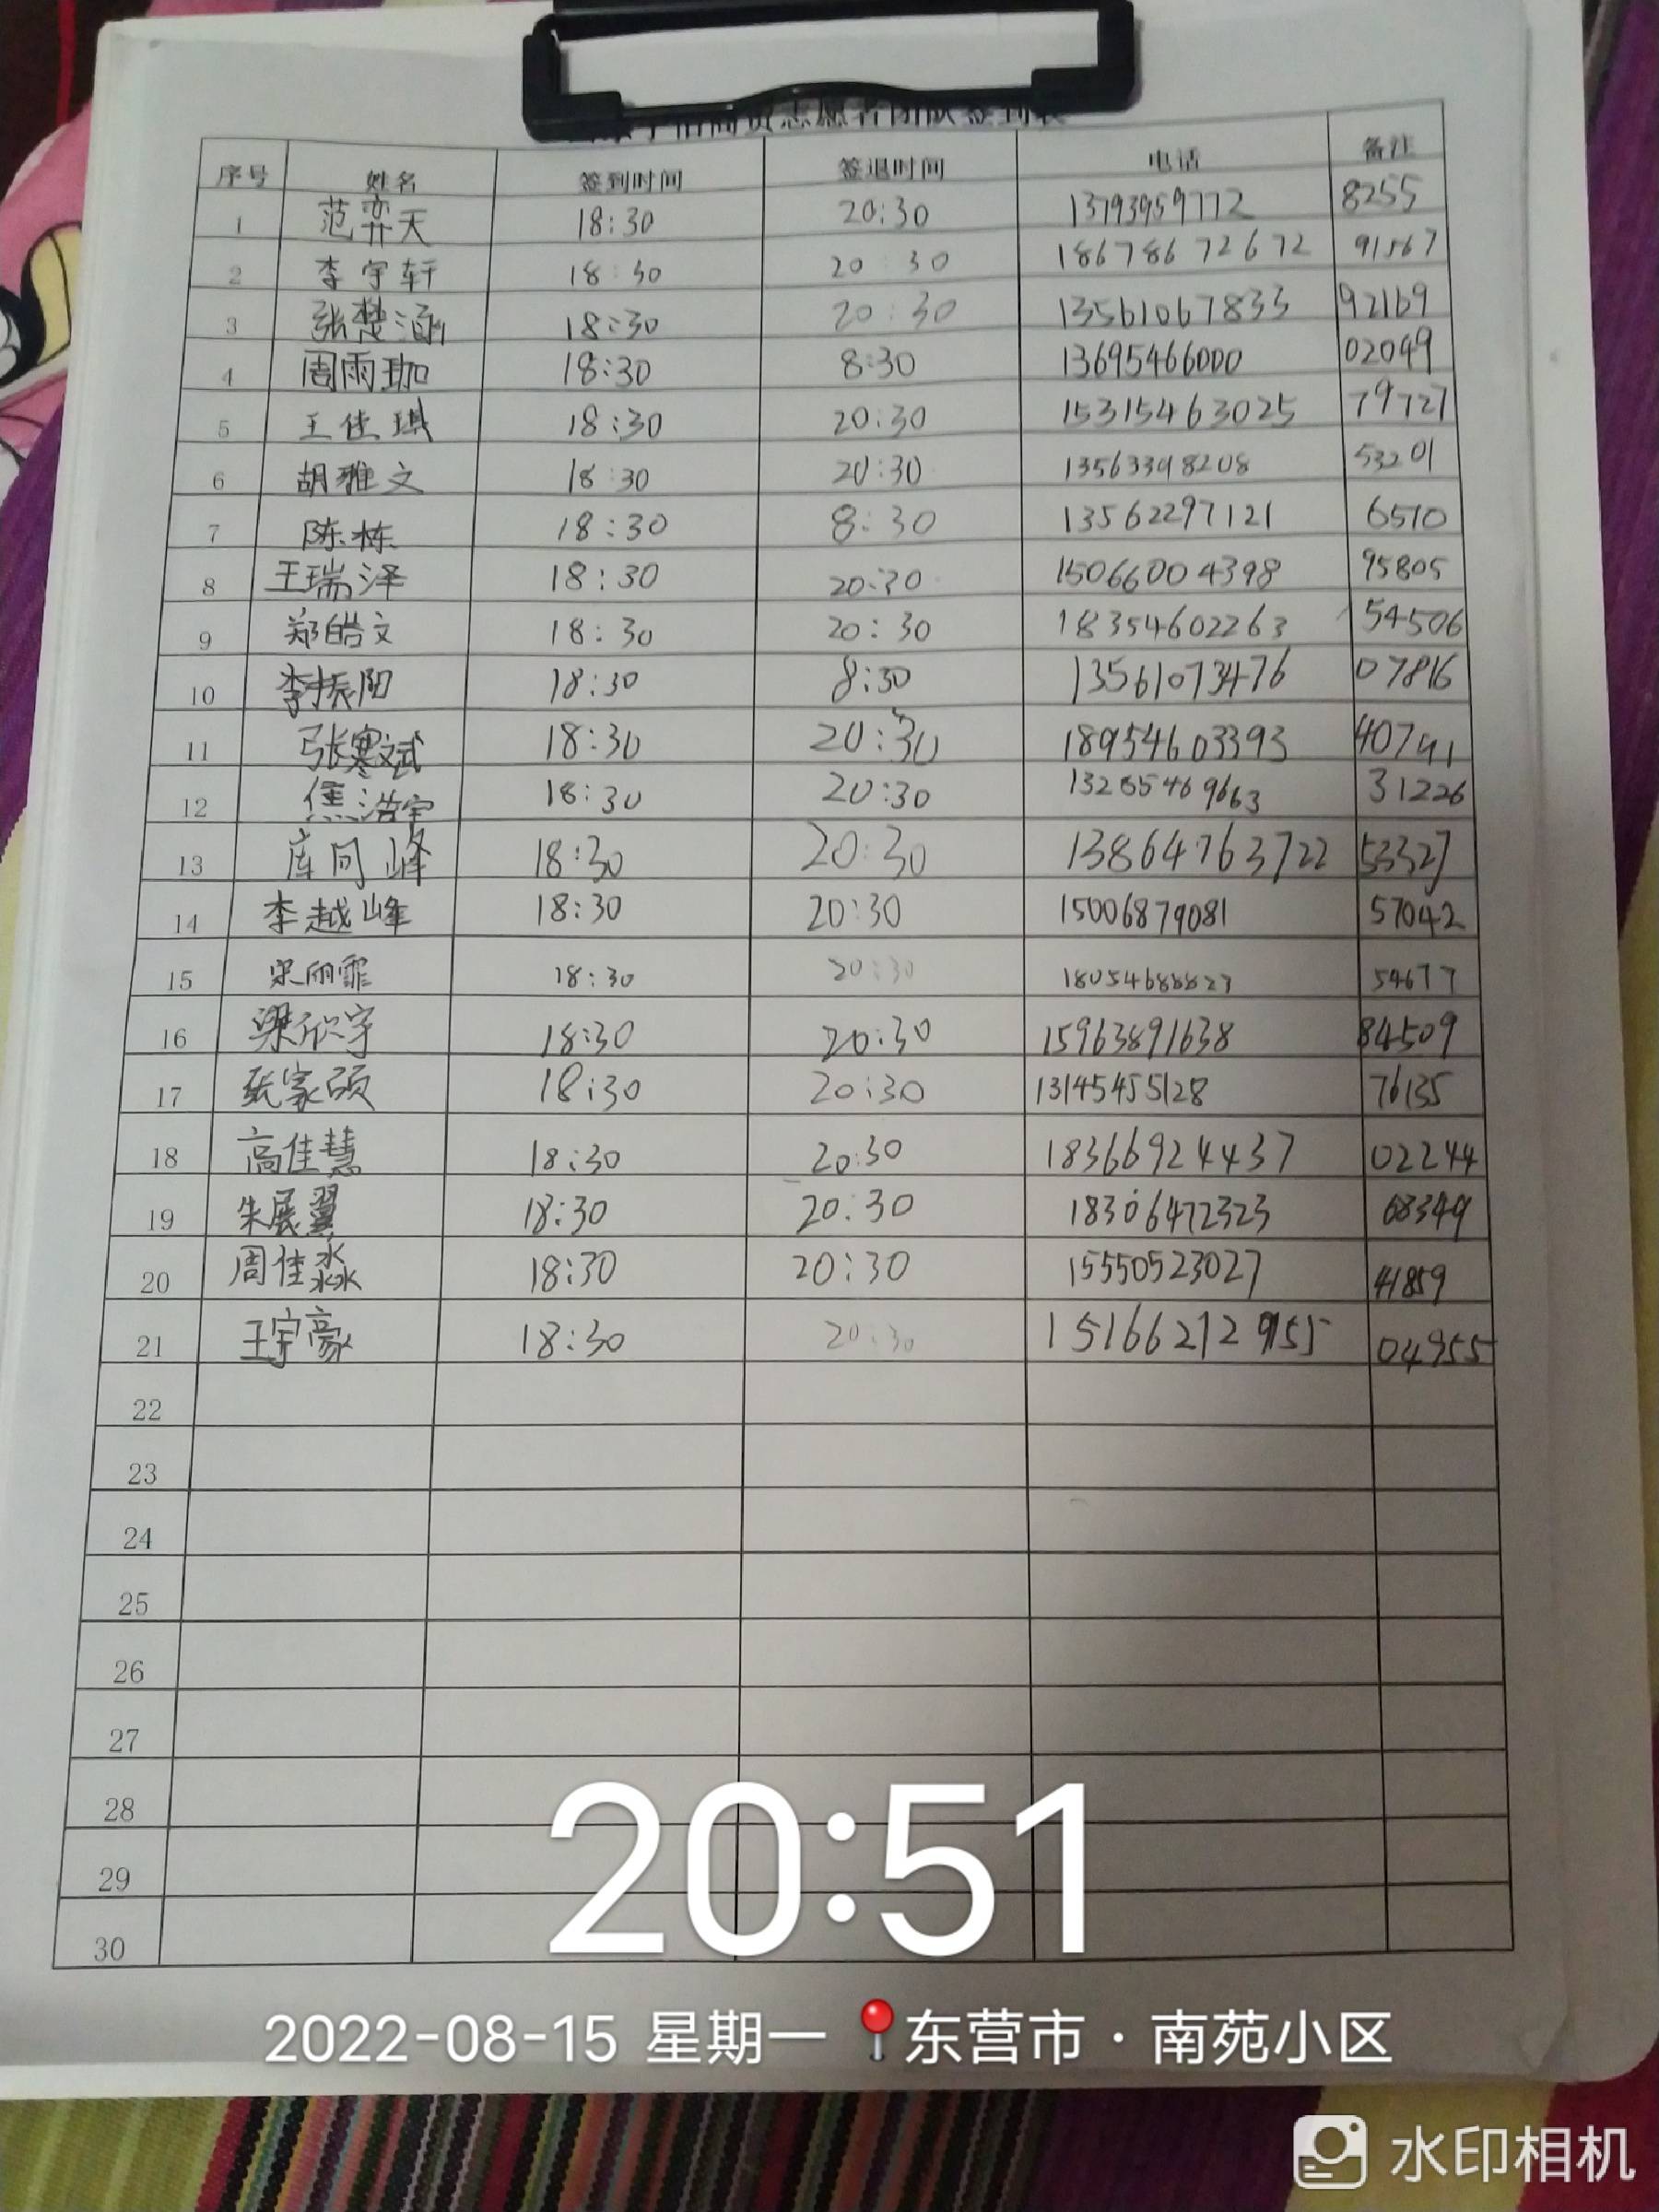 志愿者团队签到表
序号 姓名 签到时间 签退时间 电话 备注
1 范弈天 18:30 20:30 13793959772 8255
2 李宇轩 18:30 20:30 18678672672 91567
3 张楚涵 18:30 20:30 13561067833 92169
4 周雨珈 18:30 8:30 13695466000 02049
5 王佳琪 18:30 20:30 15315463025 79727
6 胡雅文 18:30 20:30 13563398208 53201
7 陈栋 18:30 8:30 13562297121 6570
8 王瑞泽 18:30 20:30 15066004398 95805
9 郑皓文 18:30 20:30 18354602263 54506
10 李振阳 18:30 8:30 13561073476 07816
11 张寒斌 18:30 20:30 18954603393 40791
12 焦浩宇 18:30 20:30 13285469663 31226
13 库同峰 18:30 20:30 13864763722 53327
14 李越峰 18:30 20:30 15006879081 57042
15 宋雨霏 18:30 20:30 54677
16 梁欣宇 18:30 20:30 15963891638 84509
17 张家硕 18:30 20:30 13145455128 76135
18 高佳慧 18:30 20:30 18366924437 02244
19 朱展翼 18:30 20:30 18306472323 68349
20 周佳淼 18:30 20:30 15550523027 41859
21 王宇豪 18:30 20:30 15166212955 04955
22
23
24
25
26
27
28
29
30
20:51
2022-08-15 星期一 东营市·南苑小区
水印相机